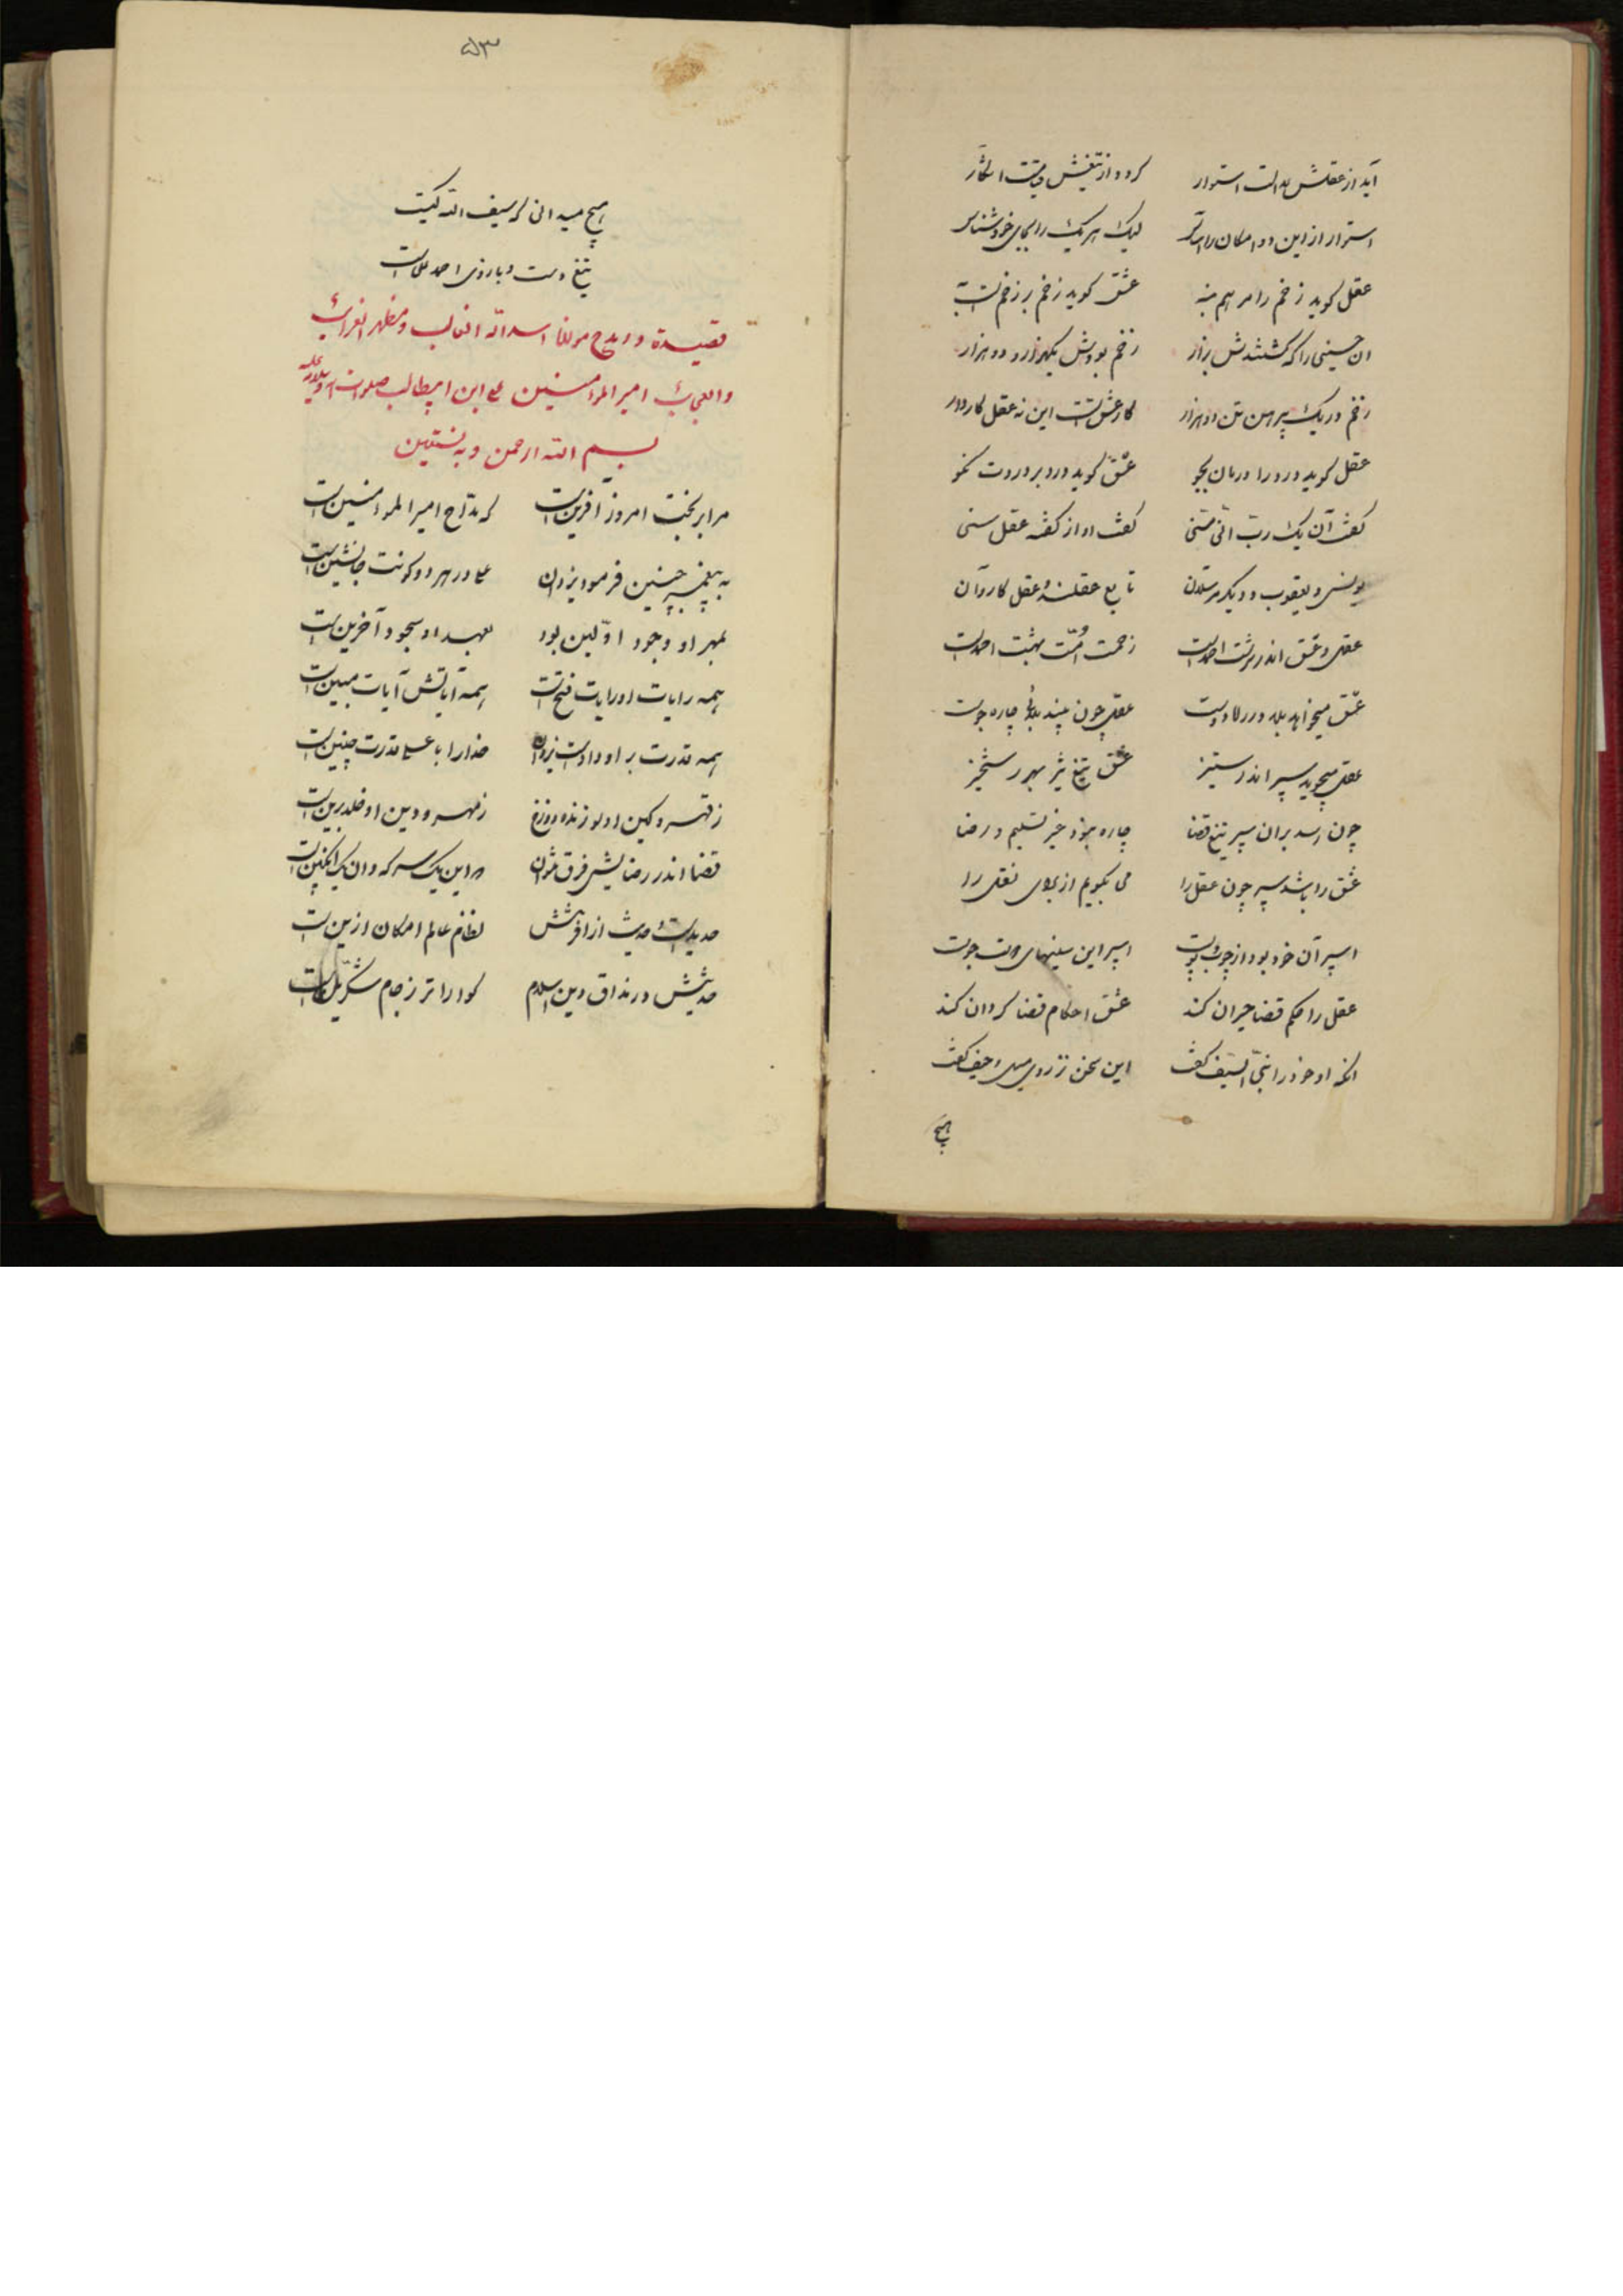 آید از عقلش عدالت استوار گردد از تیغش قیامت آشکار
استوار از این دو امکان را اساس لیک هر یک را بجای خود شناس
عقل گوید زخم را مرهم بنه عشق گوید زخم بر زخمست به
آن حسینی را که کشتندش بزار زخم بودش یکهزار و دو هزار
زخم در یک پیرهن تن دو هزار کار عشقست این نه عقل کاردار
عقل گوید درد را درمان بجو عشق گوید درد بر دردت نکو
گفت آن یک رب انی مسنی گفت او از گفته عقل سنی
یونس و یعقوب و دیگر مرسلان تابع عقلند و عقل کاردان
عقل و عشق اندر سرشت احمدست زحمت امت بهشت احمدست
عشق میخواهد بلا در راه دوست عقل چون بیند بلائی چاره جوست
عقل میجوید سپر اندر ستیز عشق تیغ تیز بهر رستخیز
چون رسد بران سپر تیغ قضا چاره نبود غیر تسلیم و رضا
عشق را باشد سپر چون عقل را می بگویم از برای نقل را
اسپر آن خود بود از چوب و پوست اسپر این سینهای دوست جوست
عقل را حکم قضا حیران کند عشق احکام قضا گردان کند
آنکه او خود را نبی السیف گفت این سخن نز روی میل و حیف گفت
هیچ
۵۳
هیچ میدانی که سیف الله کیست
تیغ دست و بازوی احمد علی است
قصیدة در مدح مولانا اسدالله الغالب و مظهر الغرائب
والعجائب امیرالمؤمنین علی ابن ابیطالب صلوات الله وسلامه علیه
بسم الله الرحمن و به نستعین
مرا بر بخت امروز آفرین است که مداح امیرالمؤمنین است
به پیغمبر چنین فرمود یزدان علی در هر دو کونت جانشین است
بمهر او وجود اولین بود بعهد او سجود آخرین است
همه رایات او رایات فتح است همه آیاتش آیات مبین است
همه قدرت بر او دادست یزدان خدا را با علی قدرت چنین است
ز قهر و کین او لوزنده دوزخ ز مهر و دین او خلد برین است
قضا اندر رضایش فرق نتوان که این یک سرکه وان یک انگبین است
حدیث از آفرینش نظام عالم امکان ازین است
حدیثش در مذاق دین اسلام گواراتر ز جام